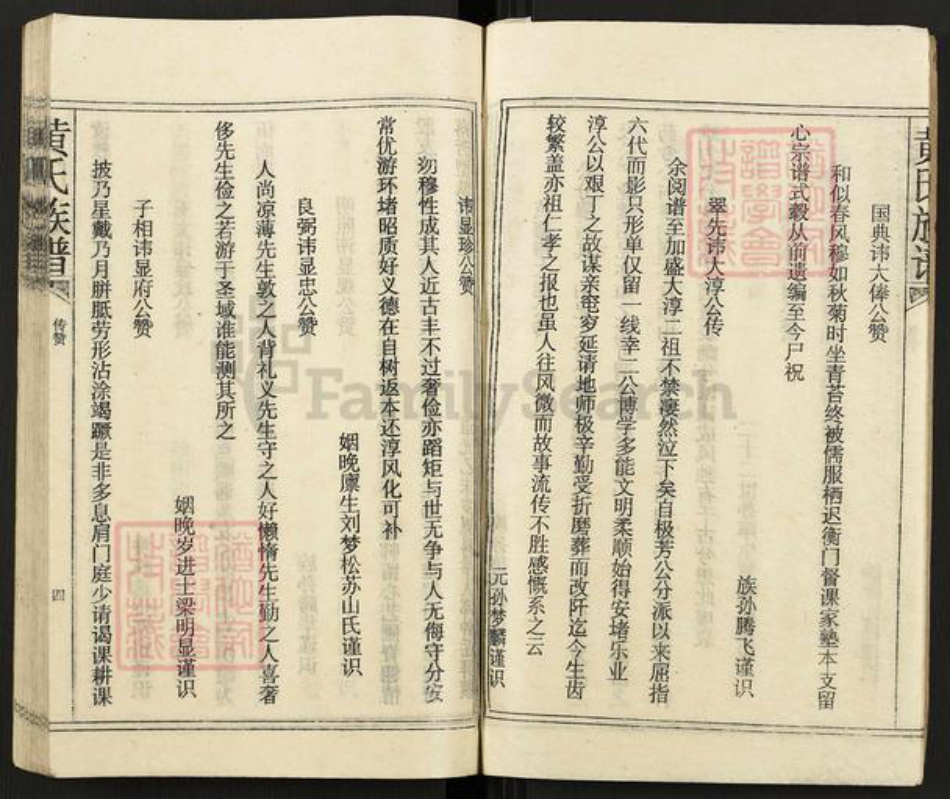 国典讳大俸公赞
和似春风穆如秋菊时坐青苔终被儒服栖迟衡门督课家塾本支留
心宗谱式毂从前遗编至今尸祝
族孙腾飞谨识
翠先讳大淳公传
余阅谱至加盛大淳二祖不禁凄然泣下矣自极芳公分派以来屈指
六代而影只形单仅留一线幸二公博学多能文明柔顺始得安堵乐业
淳公以艰丁之故谋亲窀穸延请地师极辛勤受折磨葬而改阡迄今生齿
较繁盖亦祖仁孝之报也虽人往风微而故事流传不胜感慨系之云
元孙梦麟谨识
讳显珍公赞
沕穆性成其人近古丰不过奢俭亦蹈矩与世无争与人无侮守分安
常优游环堵昭质好义德在自树返本还淳风化可补
姻晚廪生刘梦松苏山氏谨识
良弼讳显忠公赞
人尚凉薄先生敦之人背礼义先生守之人好懒惰先生勤之人喜奢
侈先生俭之若游于圣域谁能测其所之
姻晚岁进士梁明显谨识
子相讳显府公赞
披乃星戴乃月胼胝劳形沾涂竭蹶是非多息肩门庭少请谒课耕课
黄氏族谱
传赞
四
黄氏族谱
FamilySearch